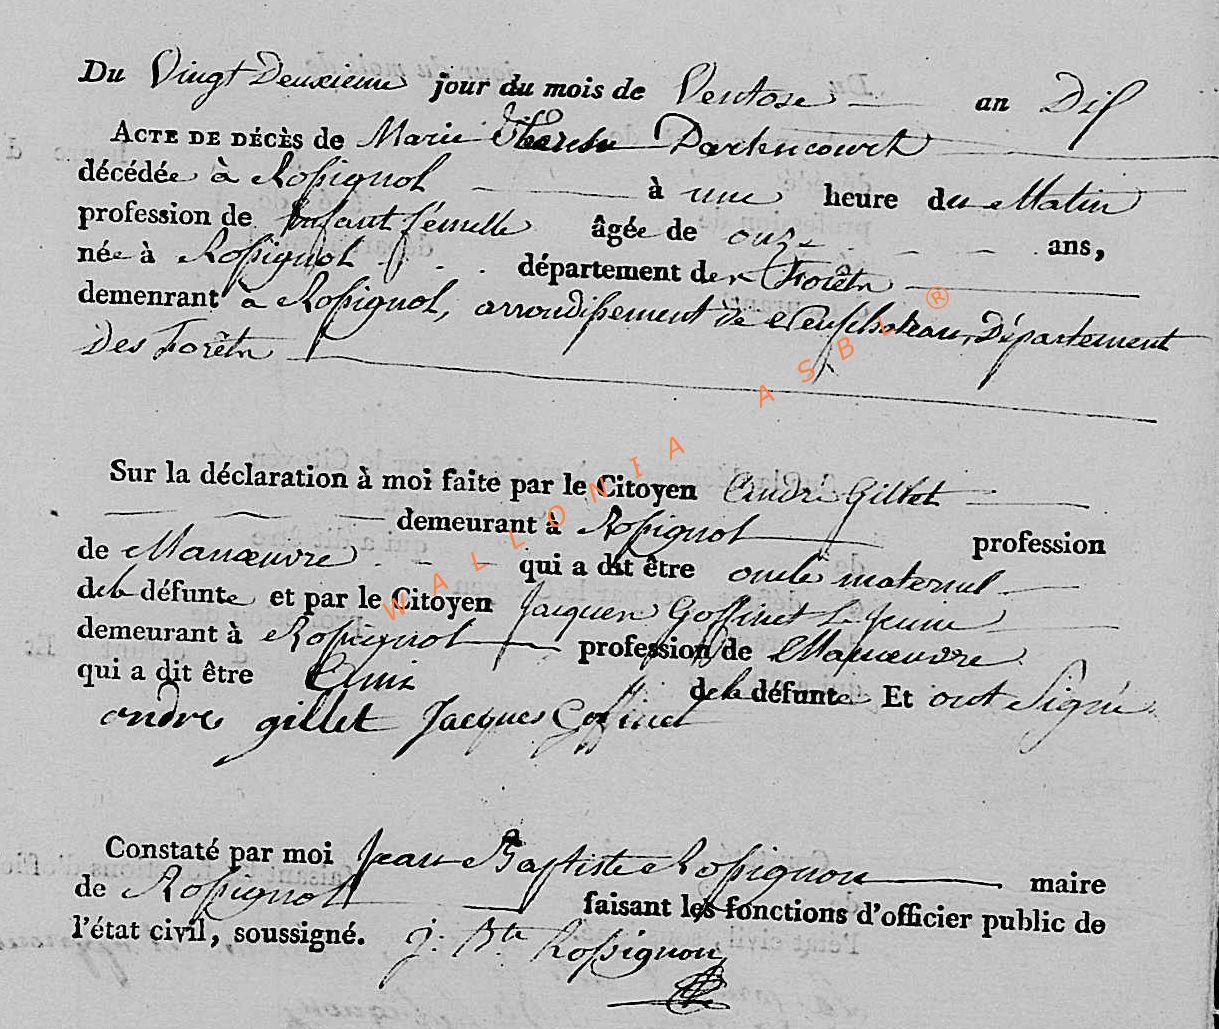 Du Vingt Deuxieme jour du mois de Ventose an Dix
ACTE DE DÉCÈS de Marie Therese Dartencourt
décédée à Rossignol à une heure du Matin
profession de Enfant fémelle âgée de onze ans,
née à Rossignol département des Forêts
demenrant à Rossignol, arrondissement de Neufchateau, Département
Des Forêts
Sur la déclaration à moi faite par le Citoyen André Gillet
demeurant à Rossignol profession
de Manœuvre qui a dit être oncle maternel
de la défunte et par le Citoyen Jacques Goffinet le Jeune
demeurant à Rossignol profession de Manœuvre
qui a dit être Amis de la défunte Et ont Signé
andre gillet Jacques Goffinet
Constaté par moi Jean Baptiste Rossignon maire
de Rossignol faisant les fonctions d'officier public de
l'état civil, soussigné. J. Bte Rossignon
WALLONIA ASBL ®